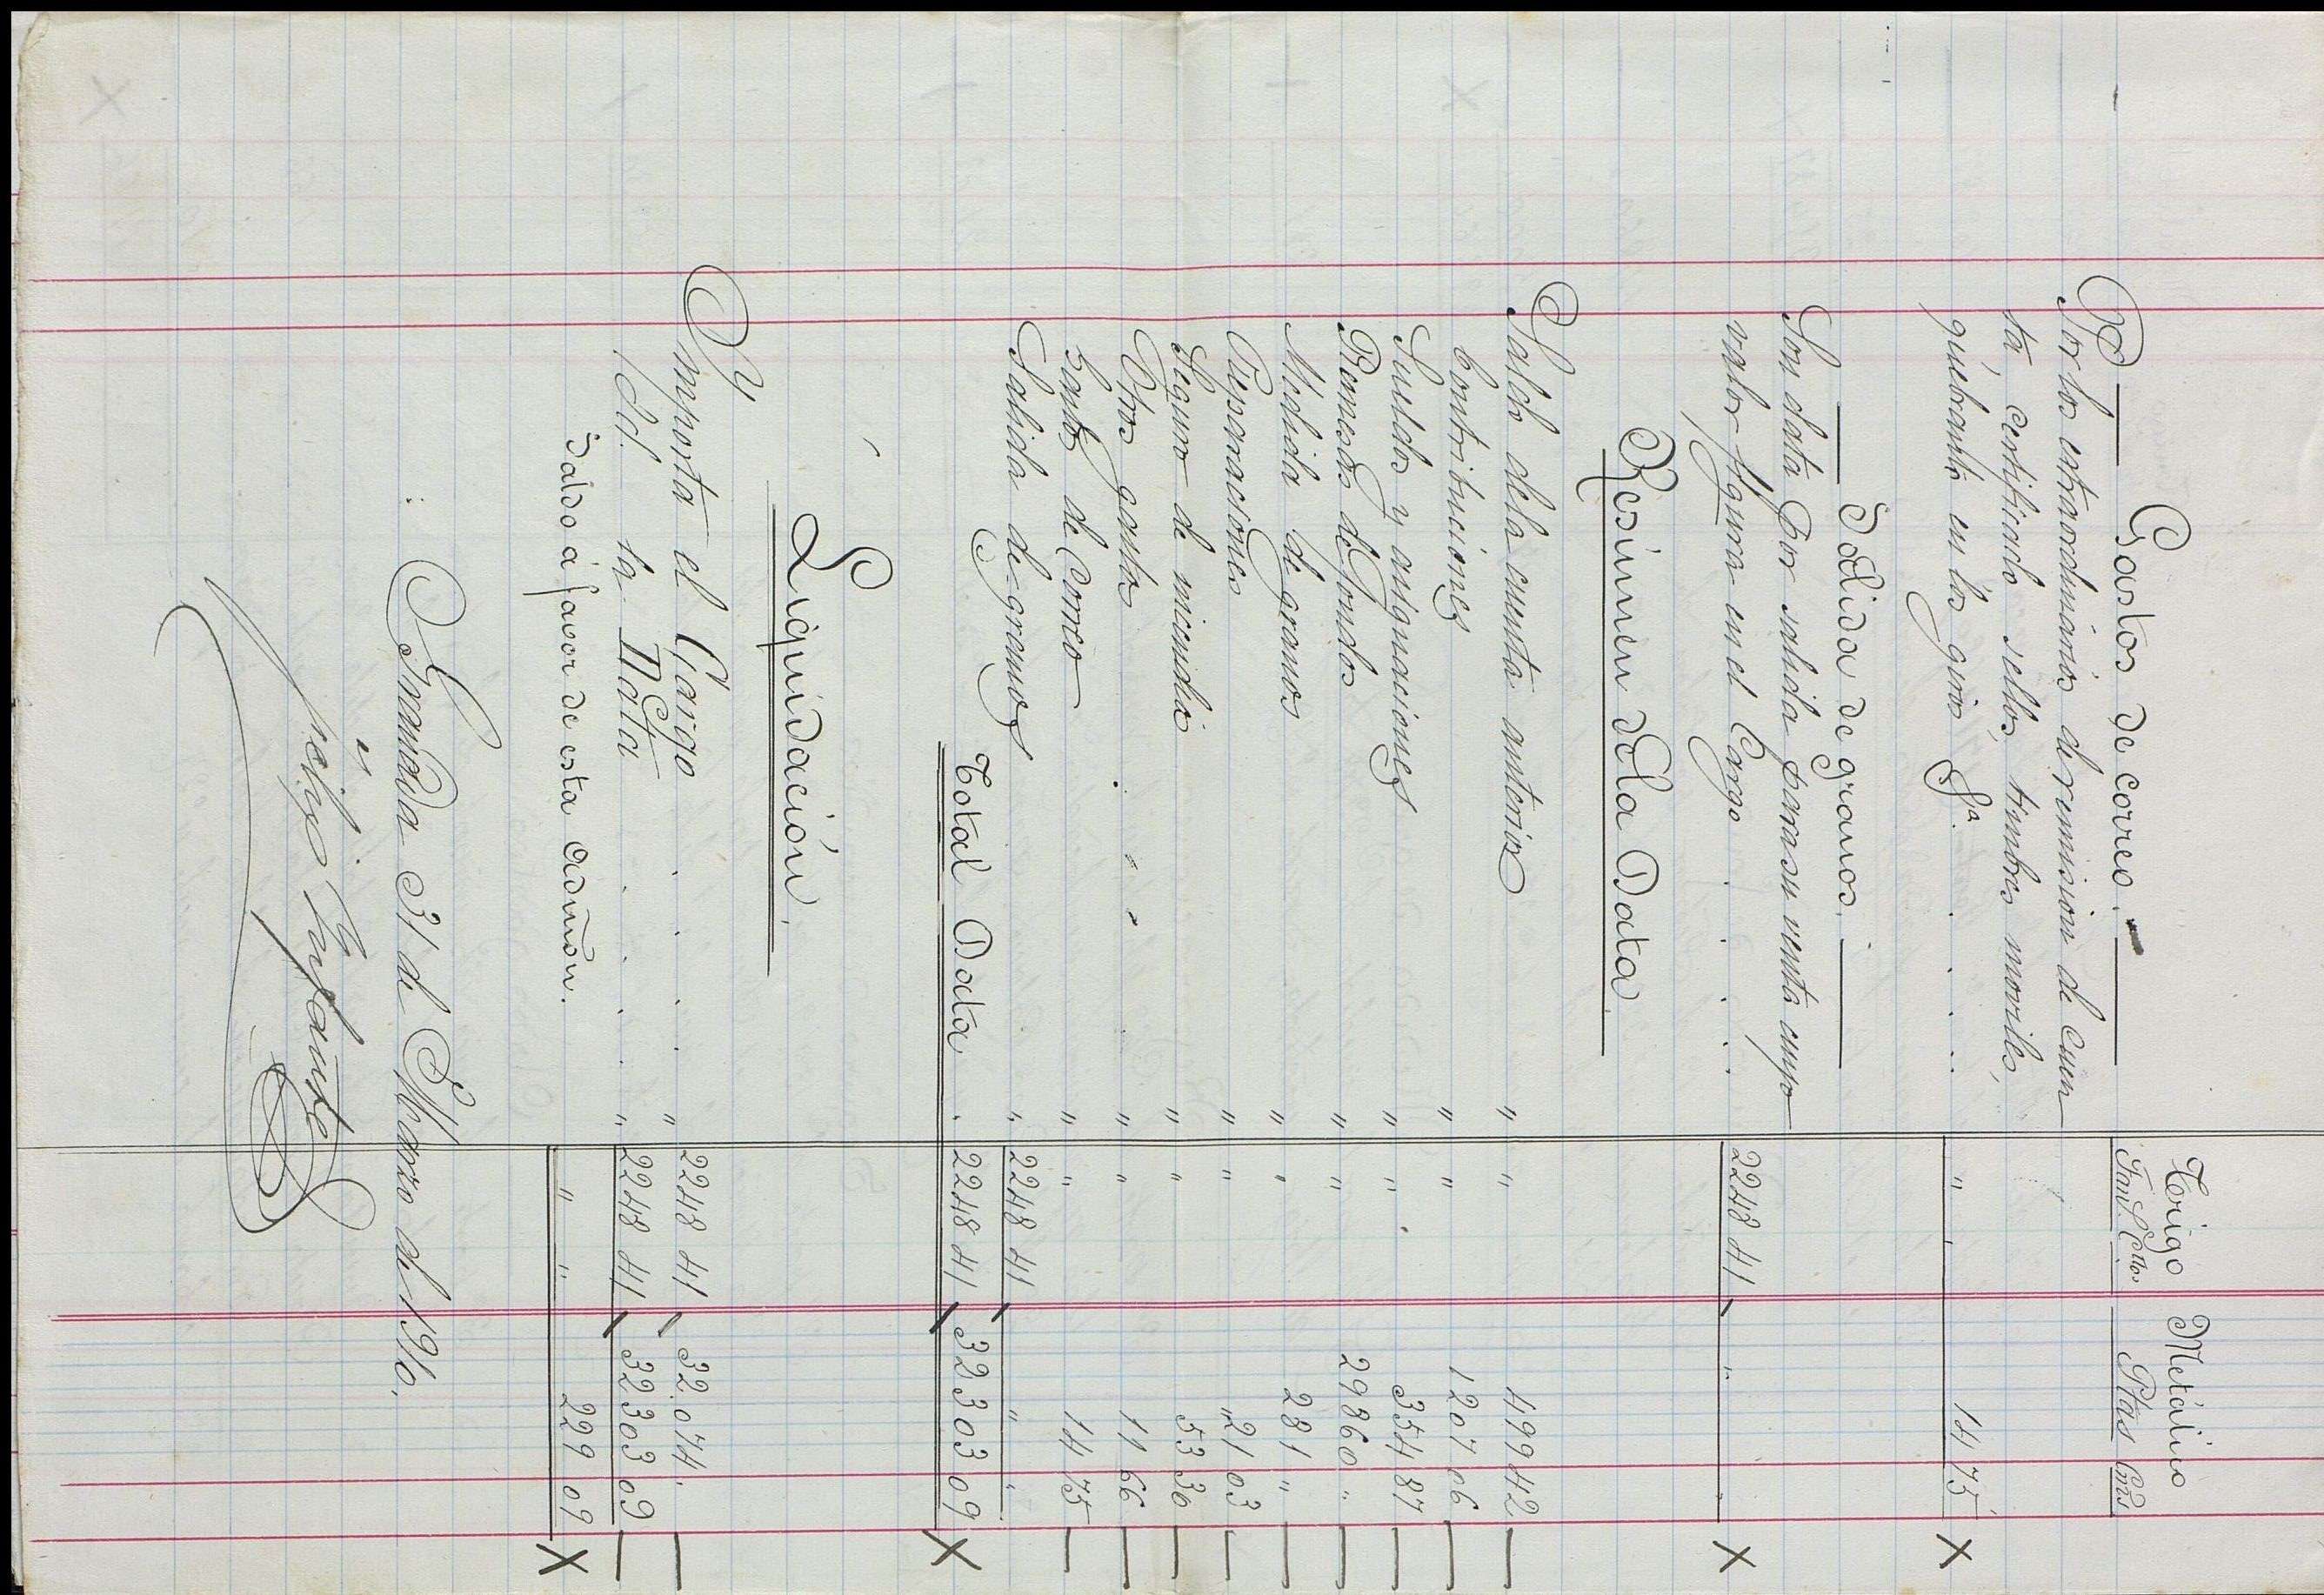 Trigo Metálico
Fans. Cllos Ptas Cnts
Gastos de correo.
Por los extraordinarios de remision de cuen
ta, certificado sellos, timbres moviles,
quebranto en los giros &a. . . . . " " 14 75
Salida de granos.
Son data por salida para su venta cuyo
valor figura en el Cargo . . . . 2248 41 " "
Resúmen de la Data
Saldo de la cuenta anterior " " 499 42
Contribuciones " " 1207 06
Sueldos y asignaciones " " 354 87
Remesas de fondos " " 29860 "
Medida de granos " " 281 "
Reparaciones " " 21 03
Seguro de incendio " " 53 30
Otros gastos . . . " " 11 66
Gastos de Correo " " 14 75
Salida de granos " 2248 41 " "
Total Data . 2248 41 32303 09
Liquidación.
Importa el Cargo . . . . " 2248 41 32.074 .
Id. la Data . . . . " 2248 41 32303 09
Saldo á favor de esta Admon. " " 229 09
Granada 31 de Marzo de 1910.
Felix Infante